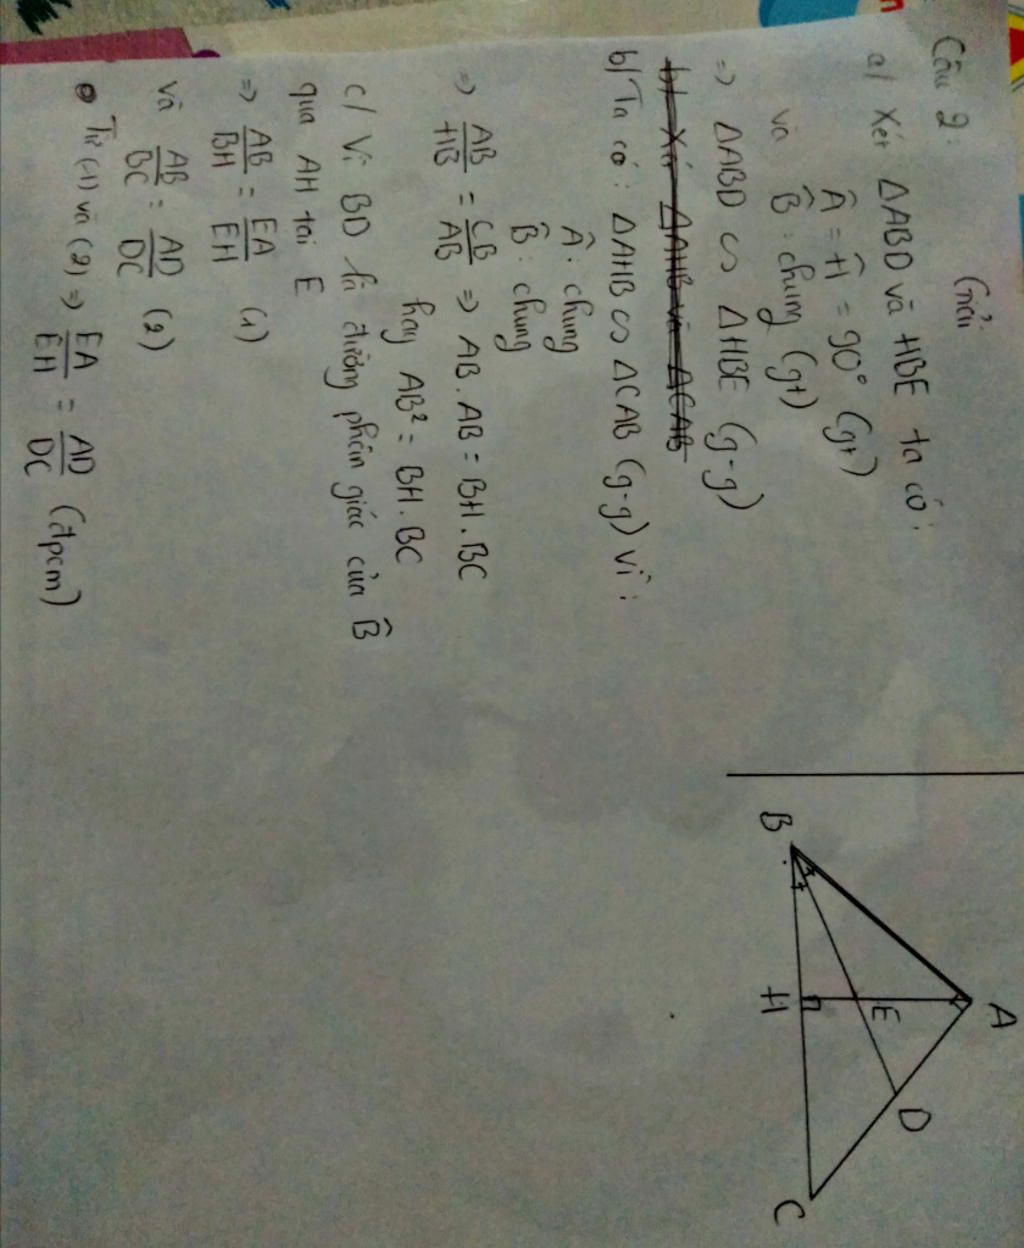 Giải
Câu 2:
a/ Xét ΔABD và HBE ta có:
Â = Ĥ = 90° (gt)
và B̂ : chung (gt)
=> ΔABD ∽ ΔHBE (g-g)
b/ Xét ΔAHB và ΔCAB
b/ Ta có : ΔAHB ∽ ΔCAB (g-g) vì :
Â : chung
B̂ : chung
=> AB/HB = CB/AB => AB.AB = BH.BC
hay AB² = BH.BC
c/ Vì BD là đường phân giác của B̂
qua AH tại E
=> AB/BH = EA/EH (1)
và AB/BC = AD/DC (2)
Từ (1) và (2) => EA/EH = AD/DC (đpcm)
A
B
H
E
D
C